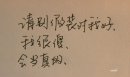 请别假装对我好,
我很傻,
会当真的.